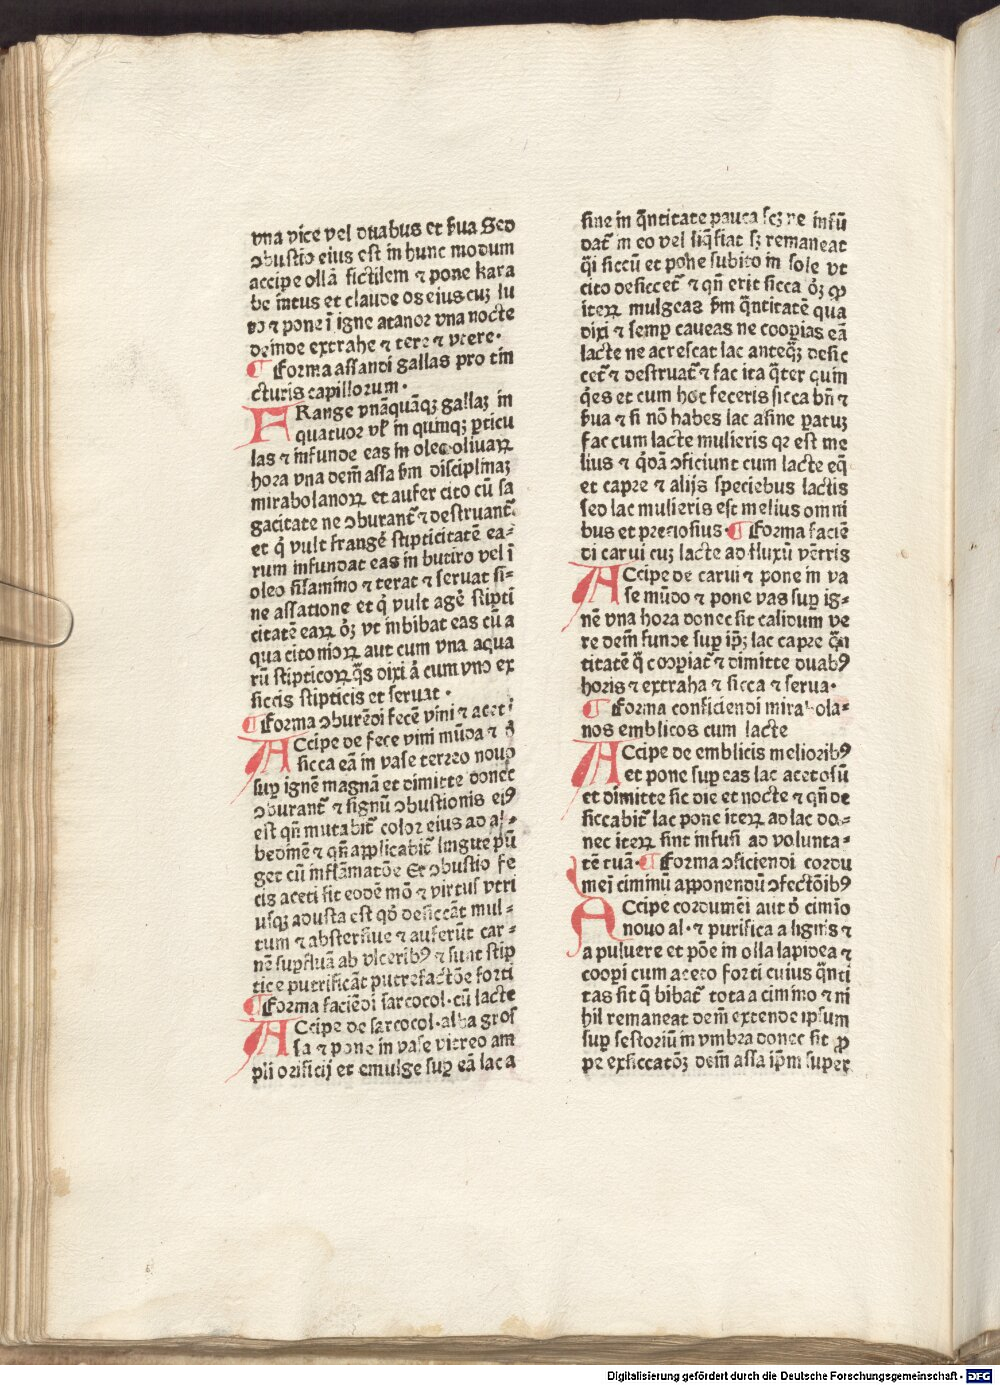 vna vice vel duabus et ẜua Sed
ↄbustio eius est in hunc modum
accipe ollā fictilem ⁊ pone kara
be intus et claude os eius cuꝫ lu
to ⁊ pone ī igne atanor vna nocte
deinde extrahe ⁊ tere ⁊ vtere.
¶ Forma assandi gallas pro tin
cturis capillorum.
FRange vnāquāqꝫ gallaꝫ in
quatuor vl' in quinqꝫ ꝑticu
las ⁊ infunde eas in oleo oliuaꝝ
hora vna dem̄ assa ẜm disciplinaꝫ
mirabolanoꝝ et aufer cito cū sa
gacitate ne ↄburant᷑ ⁊ destruant᷑
et q̇ vult frangē stipticitatē ea-
rum infundat eas in butiro vel ī
oleo sisamino ⁊ terat ⁊ seruat si-
ne assatione et q̇ vult agē stipti
citatē eaꝝ oꝫ vt inbibat eas cū a
qua citonioꝝ aut cum vna aqua
rū stipticoꝝ q̄s dixi á cum vno ex
siccis stipticis et seruat.
¶ Forma ↄburēdi fecē vini ⁊ aceti
ACcipe de fece vini mūda ⁊
sicca eā in vase terreo nouo
suꝑ ignē magnā et dimitte donec
ↄburant᷑ ⁊ signū ↄbustionis eiꝰ
est qn̄ mutabit᷑ color eius ad al-
bedinē ⁊ qn̄ applicabit᷑ lingue pū
get cū inflāmatōe Et ↄbustio fe
cis aceti sit eodē mō ⁊ virtus vtri
usqꝫ adusta est qd̓ desiccāt mul-
tum ⁊ abstersiue ⁊ auferūt car-
nē suꝑfluā ab vlceribꝰ ⁊ sunt stip
tice putrificāt putrefactōe forti
¶ Forma faciēdi sarcocol. cū lacte
ACcipe de sarcocol. alba gros
sa ⁊ pone in vase vitreo am
pli orificij et emulge suꝑ eā lac a
sine in q̄ntitate pauca scꝫ ne infū
dat᷑ in eo vel liq̄fiat sꝫ remaneat
q̄i siccū et pone subito in sole vt
cito desiccet᷑ ⁊ qn̄ erit sicca oꝫ ꝙ
iteꝝ mulgeas ẜm q̄ntitatē qua
dixi ⁊ semꝑ caueas ne cooꝑias eā
lacte ne acrescat lac anteqꝫ desic
cet᷑ ⁊ destruat᷑ ⁊ fac ita q̄ter quin
q̄es et cum hoc feceris sicca bn̄ ⁊
ẜua ⁊ si nō habes lac asine ꝑatuꝫ
fac cum lacte mulieris qr est me
lius ⁊ q̇dā ↄficiunt cum lacte eq̄
et capre ⁊ alijs speciebus lactis
sed lac mulieris est melius omni
bus et preciosius. ¶ Forma faciē
di carui cuꝫ lacte ad fluxū vētris
ACcipe de carui ⁊ pone in va
se mūdo ⁊ pone vas suꝑ ig-
nē vna hora donec sit calidum ve
re dem̄ funde suꝑ ip̄ꝫ lac capre q̄n
titatē q̄ cooꝑiat᷑ ⁊ dimitte duabꝰ
horis ⁊ extraha ⁊ sicca ⁊ serua.
¶ Forma conficiendi mirabola-
nos emblicos cum lacte
ACcipe de emblicis melioribꝰ
et pone suꝑ eas lac acetosū
et dimitte sic die et nocte ⁊ qn̄ de
siccabit᷑ lac pone iteꝝ ad lac do-
nec iteꝝ sint infusi ad volunta-
tē tuā. ¶ Forma ↄficiendi cordu
mei ciminū apponendū ↄfectōibꝰ
ACcipe cordumēi aut d̓ cimīo
nouo al. ⁊ purifica a lignis ⁊
a puluere et pōe in olla lapidea ⁊
cooꝑi cum aceto forti cuius q̄nti
tas sit q̄ bibat᷑ tota a cimino ⁊ ni
hil remaneat dem̄ extende ipsum
suꝑ sestoriū in vmbra donec sit ꝓ
pe exsiccatōꝫ dem̄ assa ip̄m super
Digitalisierung gefördert durch die Deutsche Forschungsgemeinschaft - DFG